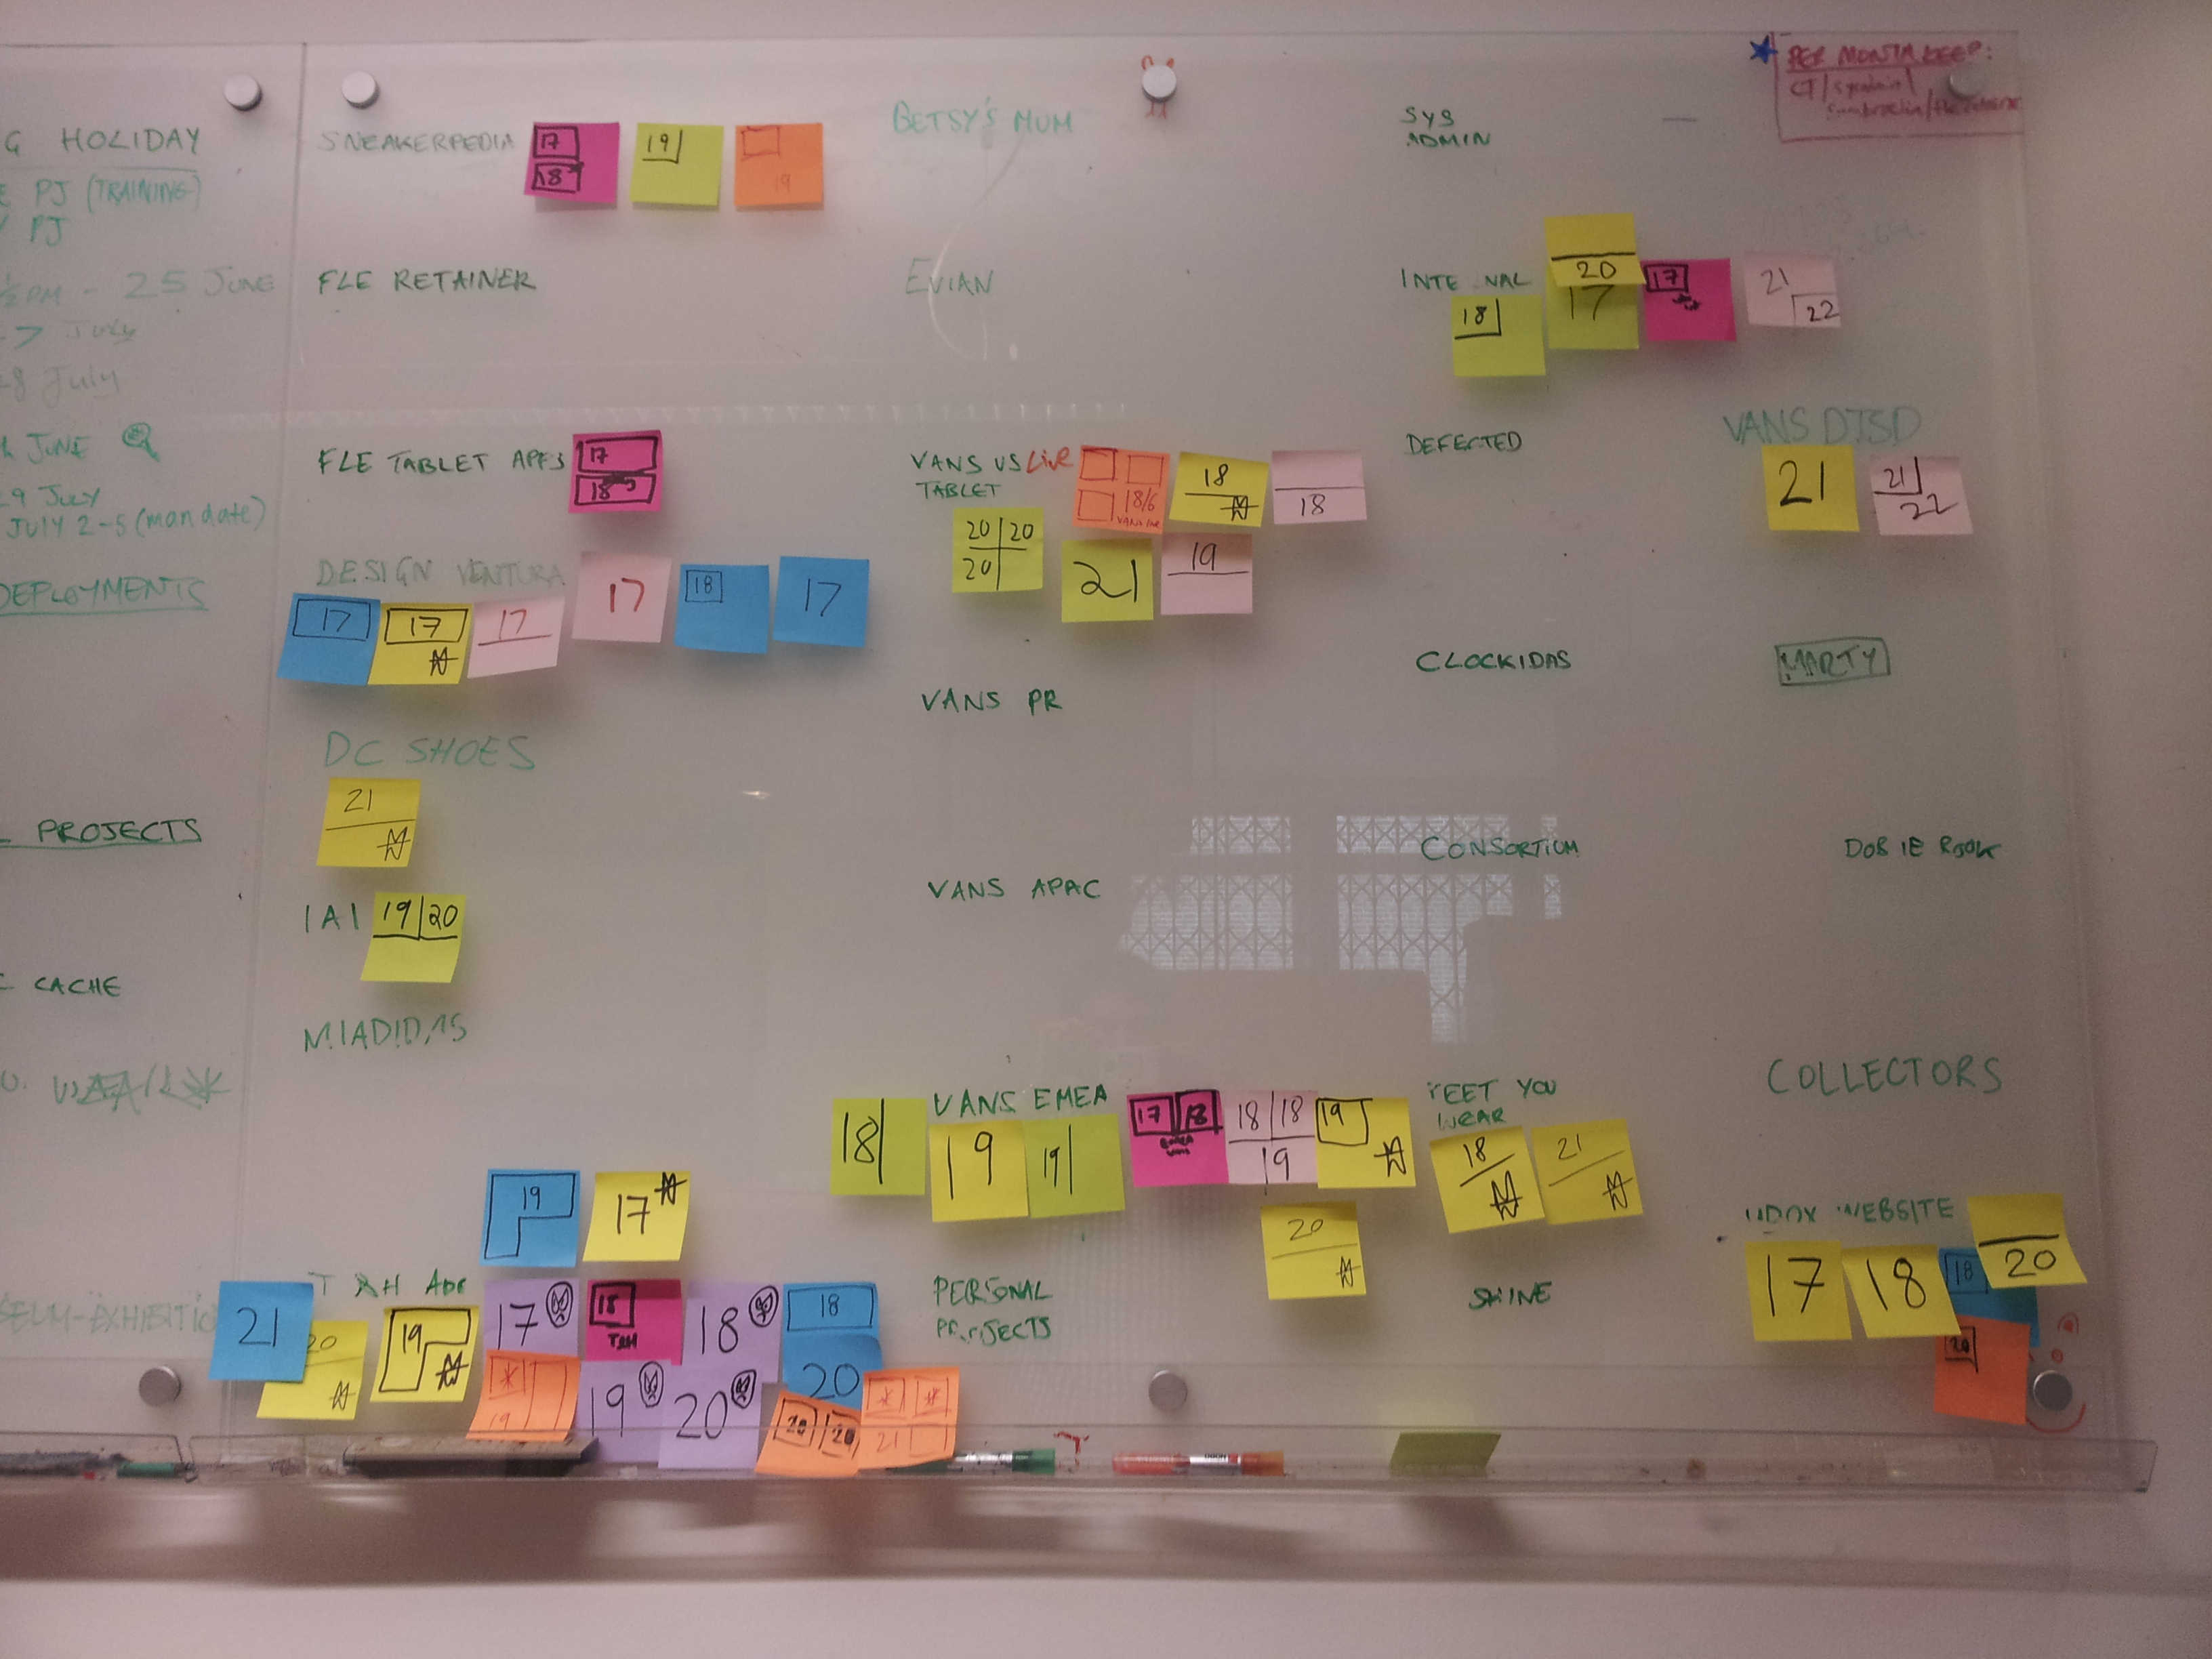 G HOLIDAY
PJ (TRAINING)
PJ
- 25 JUNE
7 July
28 July
JUNE
29 JULY
JULY 2-5 (mandate)
DEPLOYMENTS
PROJECTS
CACHE
SNEAKERPEDIA
17
18
19
19
FLE RETAINER
FLE TABLET APPS
17
18
DESIGN VENTURA
17
17
17
17
18
17
DC SHOES
21
IAI
19 20
MIADIDAS
19
17
21
20
19
17
18
T&H
18
18
19
19
20
20
20 20
21
BETSY'S MUM
EVIAN
VANS US Live
TABLET
18/6
18
18
20 20
20
21
19
VANS PR
VANS APAC
VANS EMEA
18
19
19
17 18
EMEA
VANS
18 18
19
19
20
PERSONAL
PROJECTS
SYS
ADMIN
INTE NAL
20
17
18
17
21
22
DEFECTED
CLOCKIDAS
CONSORTIUM
FEET YOU
WEAR
18
21
SHINE
PER MONTH KEEP:
VANS DTSD
21
21
22
MARTY
COLLECTORS
WEBSITE
17
18
18
20
20